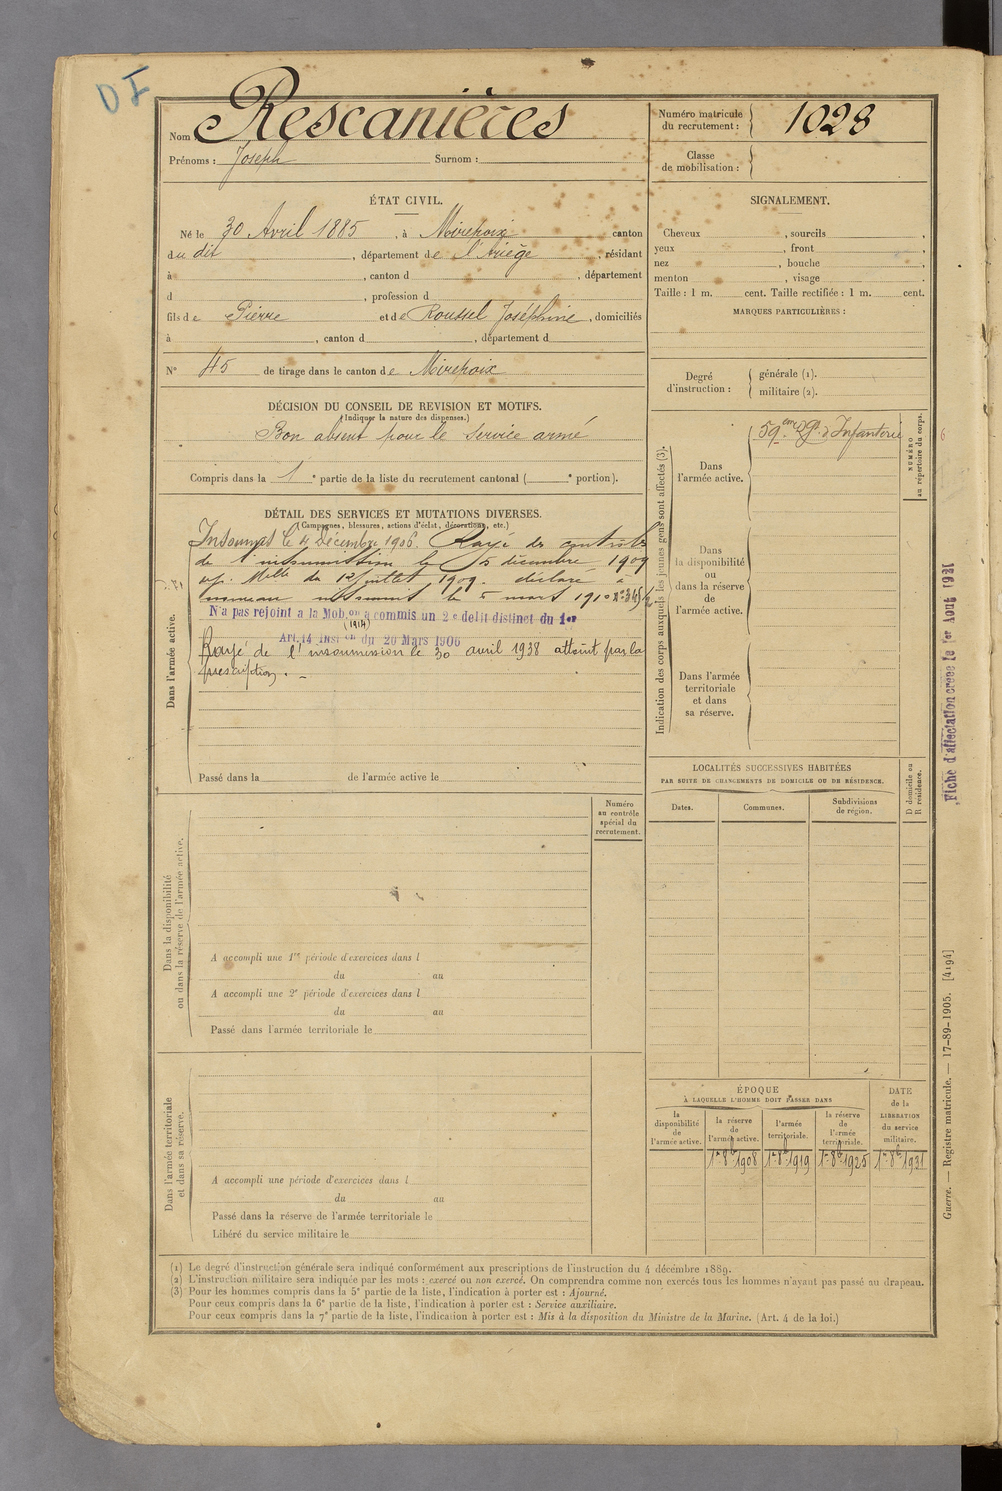 DI
Nom Rescanières
Prénoms : Joseph Surnom :
Numéro matricule
du recrutement : 1028
Classe
de mobilisation :
ÉTAT CIVIL.
Né le 30 Avril 1885 , à Mirepoix canton
du dit , département de l'Ariège , résidant
à , canton d , département
d , profession d
fils de Pierre et de Roussel Joséphine , domiciliés
à , canton d , département d
N° 45 de tirage dans le canton de Mirepoix
SIGNALEMENT.
Cheveux , sourcils ,
yeux , front ,
nez , bouche ,
menton , visage .
Taille : 1 m. cent. Taille rectifiée : 1 m. cent.
MARQUES PARTICULIÈRES :
Degré
d'instruction :
générale (1).
militaire (2).
DÉCISION DU CONSEIL DE REVISION ET MOTIFS.
(Indiquer la nature des dispenses.)
Bon absent pour le service armé
Compris dans la 1 e partie de la liste du recrutement cantonal ( e portion).
DÉTAIL DES SERVICES ET MUTATIONS DIVERSES.
(Campagnes, blessures, actions d'éclat, décorations, etc.)
Dans l'armée active.
Insoumis le 4 Décembre 1906. Rayé des contrôles
de l'insoumission le 5 décembre 1909
du 12 juillet 1909. déclaré à
nouveau insoumis le 5 mars 1910
N'a pas rejoint a la Mob.on a commis un 2e delit distinct du 1er
(1914)
Art. 14 Inst on du 20 Mars 1906
Rayé de l'insoumission le 30 avril 1938 atteint par la
prescription. -
Passé dans la de l'armée active le
Indication des corps auxquels les jeunes gens sont affectés (3).
Dans
l'armée active.
59eme Rgt d'Infanterie
NUMÉRO
au répertoire du corps.
Dans
la disponibilité
ou
dans la réserve
de
l'armée active.
Dans l'armée
territoriale
et dans
sa réserve.
Fiche d'affectation creee le 1er Aout 1931
LOCALITÉS SUCCESSIVES HABITÉES
PAR SUITE DE CHANGEMENTS DE DOMICILE OU DE RÉSIDENCE.
Dates.
Communes.
Subdivisions
de région.
D domicile ou
R résidence.
Dans la disponibilité
ou dans la réserve de l'armée active.
Numéro
au contrôle
spécial du
recrutement.
A accompli une 1re période d'exercices dans l
du au
A accompli une 2e période d'exercices dans l
du au
Passé dans l'armée territoriale le
Dans l'armée territoriale
et dans sa réserve.
A accompli une période d'exercices dans l
du au
Passé dans la réserve de l'armée territoriale le
Libéré du service militaire le
ÉPOQUE
À LAQUELLE L'HOMME DOIT PASSER DANS
la
disponibilité
de
l'armée active.
la réserve
de
l'armée active.
l'armée
territoriale.
la réserve
de
l'armée
territoriale.
DATE
de la
LIBÉRATION
du service
militaire.
1er 8b 1908 1er 8b 1919 1er 8b 1925 1er 8b 1931
Guerre. — Registre matricule. — 17-89-1905. [4194]
(1) Le degré d'instruction générale sera indiqué conformément aux prescriptions de l'instruction du 4 décembre 1889.
(2) L'instruction militaire sera indiquée par les mots : exercé ou non exercé. On comprendra comme non exercés tous les hommes n'ayant pas passé au drapeau.
(3) Pour les hommes compris dans la 5e partie de la liste, l'indication à porter est : Ajourné.
Pour ceux compris dans la 6e partie de la liste, l'indication à porter est : Service auxiliaire.
Pour ceux compris dans la 7e partie de la liste, l'indication à porter est : Mis à la disposition du Ministre de la Marine. (Art. 4 de la loi.)